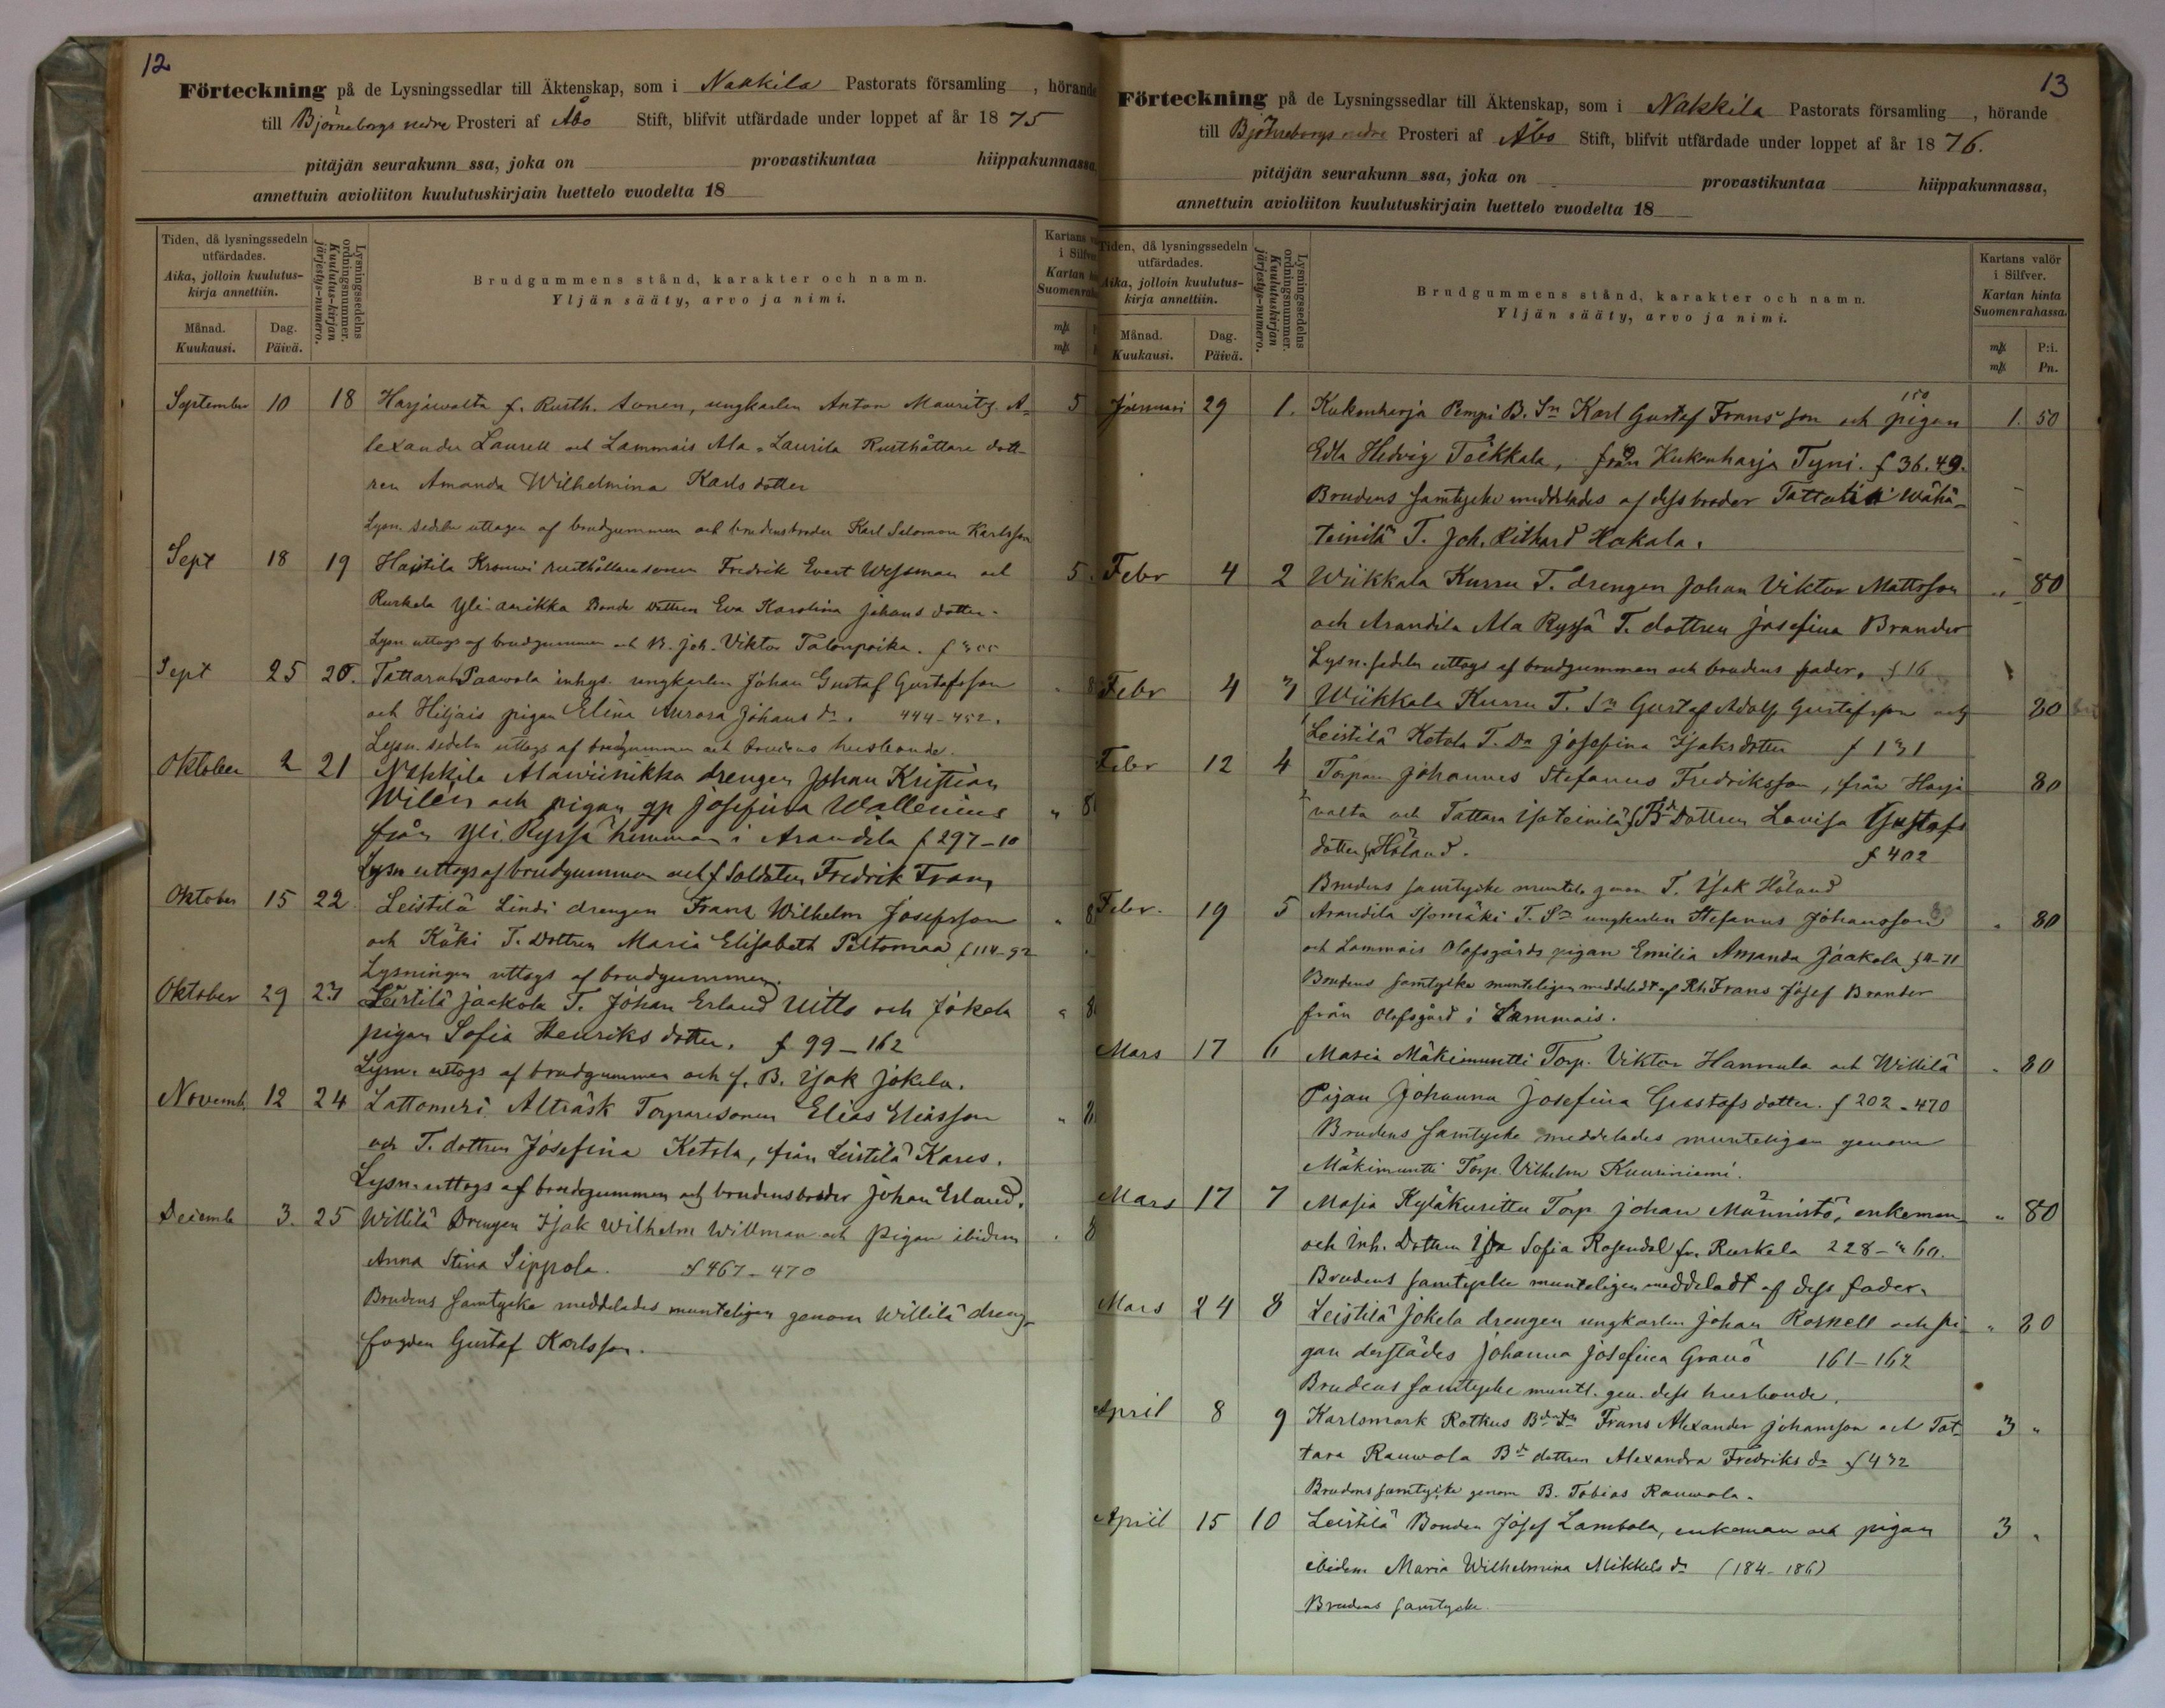 12
Förteckning på de Lysningssedlar till Äktenskap, som i Nakkila Pastorats församling, hörande
till Björneborgs nedre Prosteri af Åbo Stift, blifvit utfärdade under loppet af år 1875
pitäjän seurakunn ssa, joka on provastikuntaa hiippakunnassa,
annettuin avioliiton kuulutuskirjain luettelo vuodelta 18
Tiden, då lysningssedeln utfärdades.
Aika, jolloin kuulutus-kirja annettiin.
Månad. Kuukausi.
Dag. Päivä.
Lysningssedelns ordningsnummer.
Kuulutus-kirjan järjestys-numero.
Brudgummens stånd, karakter och namn.
Yljän sääty, arvo ja nimi.
Kartans
i Silfver
Kartan
Suomenraha
mk
mk
September 10 18 Harjawalta f. Rusth. sonen, ungkarlen Anton Mauritz A- 5
lexander Laurell och Lammais Ala-Laurila Rusthållare dott-
ren Amanda Wilhelmina Karlsdotter
Lysn. sedeln uttagen af brudgummen och brudens broder Karl Salomon Karlsson
Sept 18 19 Haistila Krouwi rusthållaresonen Fredrik Evert Wessman och 5
Ruskela Yli- Bonde dottren Eva Karolina Johansdotter.
Lysn uttogs af brudgummen och B. Joh. Viktor Talonpoika.
Sept 25 20. Tattara Paawola inhys. ungkarlen Johan Gustaf Gustafsson 8
och Hiljais pigan Elina Aurora Johans dr. 444-452.
Lysn. sedeln uttogs af brudgummen och brudens husbonde.
Oktober 2 21 Nakkila Alawiinikka drengen Johan Kristian
Wilén och pigan Josefina Wallenius " 8
från Yli Ryssä hemman i Arandila f 297-10
Lysn uttogs af brudgummen och f Soldaten Fredrik Fram
Oktober 15 22 Leistilä Lindi drengen Frans Wilhelm Josefsson " 8
och Käki T. dottren Maria Elisabeth Peltomaa f 114-92
Lysningen uttogs af brudgummen.
Oktober 29 23 Leistilä Jaakola T. Johan Erland Uitto och Jokela " 8
pigan Sofia Henriksdotter. f 99-162
Lysn. uttogs af brudgummen och f. B. Isak Jokela.
Novemb 12 24 Lattomeri Alträsk Torparesonen Elias Eliasson " 8
och T. dottren Josefina Ketola, från Leistilä Kares.
Lysn. uttogs af brudgummen och brudens broder Johan Erland.
Decemb 3. 25 Willilä Drengen Isak Wilhelm Willman och Pigan ibidem 8
Anna Stina Sippola. f 467-470
Brudens samtycke meddelades munteligen genom Willilä dreng-
fogden Gustaf Karlsson.
13
Förteckning på de Lysningssedlar till Äktenskap, som i Nakkila Pastorats församling, hörande
till Björneborgs nedre Prosteri af Åbo Stift, blifvit utfärdade under loppet af år 1876.
pitäjän seurakunn ssa, joka on provastikuntaa hiippakunnassa,
annettuin avioliiton kuulutuskirjain luettelo vuodelta 18
Tiden, då lysningssedeln utfärdades.
Aika, jolloin kuulutus-kirja annettiin.
Månad. Kuukausi.
Dag. Päivä.
Lysningssedelns ordningsnummer.
Kuulutuskirjan järjestys-numero.
Brudgummens stånd, karakter och namn.
Yljän sääty, arvo ja nimi.
Kartans valör
i Silfver.
Kartan hinta
Suomenrahassa.
mk P:i.
mk Pn.
150
Januari 29 1. Kukonharja Pempi B. Sn Karl Gustaf Fransson och pigan 1. 50
Edla Hedvig Toikkala, från Kukonharja Tyni. f 36.49.
Brudens samtycke meddelades af dess broder Wähä-
Teinilä T. Joh. Rikhard Hakala.
Febr 4 2 Wiikkala Kurru T. drengen Johan Viktor Mattsson " 80
och Arandila Ala Ryssä T. dottren Josefina Brander
Lysn. sedeln uttogs af brudgummen och brudens fader. f 16
Febr 4 3 Wiikkala Kurru T. Sn Gustaf Adolf Gustafsson och 80
Leistilä Ketola T. Dr Josefina Isaksdotter f 131
Febr 12 4 Torparen Johannes Stefanus Fredriksson, från Harja 80
valta och Tattara Isoteinilä Bd Dottren Lovisa Gustafs
dotter Höland. f 402
Brudens samtycke muntel. genom T. Isak Höland
Febr. 19 5 Arandila Isomäki T. Sn ungkarlen Stefanus Johansson " 80
och Lammais Olofsgårds pigan Emilia Amanda Jaakola f 4-71
Brudens samtycke munteligen meddeladt af Rh Frans Josef Brander
från Olofsgård i Lammais.
Mars 17 6 Masia Mäkimuntti Torp. Viktor Hannula och Willilä " 80
Pigan Johanna Josefina Gustafsdotter. f 202-470
Brudens samtycke meddelades munteligen genom
Mäkimuntti Torp. Vilhelm Kuusiniemi.
Mars 17 7 Masia Kyläkurittu Torp Johan Männistö, enkeman " 80
och Inh. Dottren Ida Sofia Rosendal fr. Ruskela 228-360.
Brudens samtycke munteligen meddeladt af dess fader.
Mars 24 8 Leistilä Jokela drengen ungkarlen Johan Rosnell och pi- " 80
gan derstädes Johanna Josefina Granö 161-162
Brudens samtycke muntl. gen. dess husbonde.
April 8 9 Karlsmark Rotkus Bde Sn Frans Alexander Johansson och Tat- 3 "
tara Rauwola Bde dottren Alexandra Fredriks dr f 432
Brudens samtycke genom B. Tobias Rauwola.
April 15 10 Leistilä Bonden Josef Lambola, enkeman och pigan 3 "
ibidem Maria Wilhelmina Mikkels dr (184-186)
Brudens samtycke